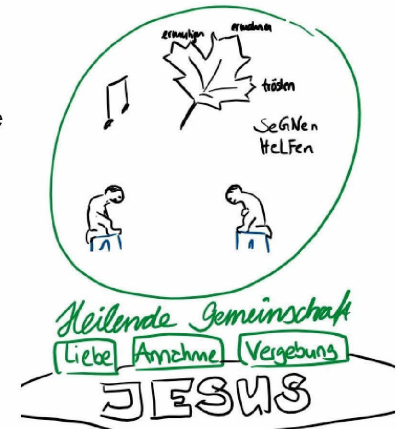 ermutigen ermahnen
trösten
SeGNeN
HeLFen
Heilende Gemeinschaft
Liebe Annahme Vergebung
JESUS